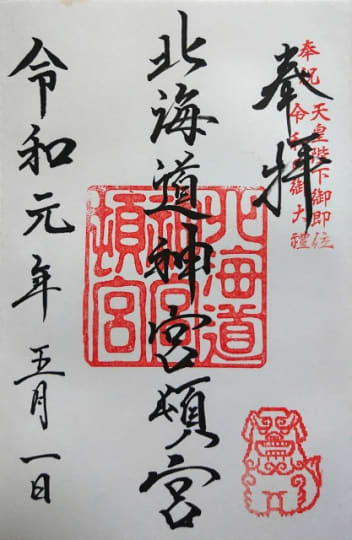 奉拝
奉祝
天皇陛下御即位
令和御大禮
北海道神宮頓宮
北海道
神宮
頓宮
令和元年五月一日